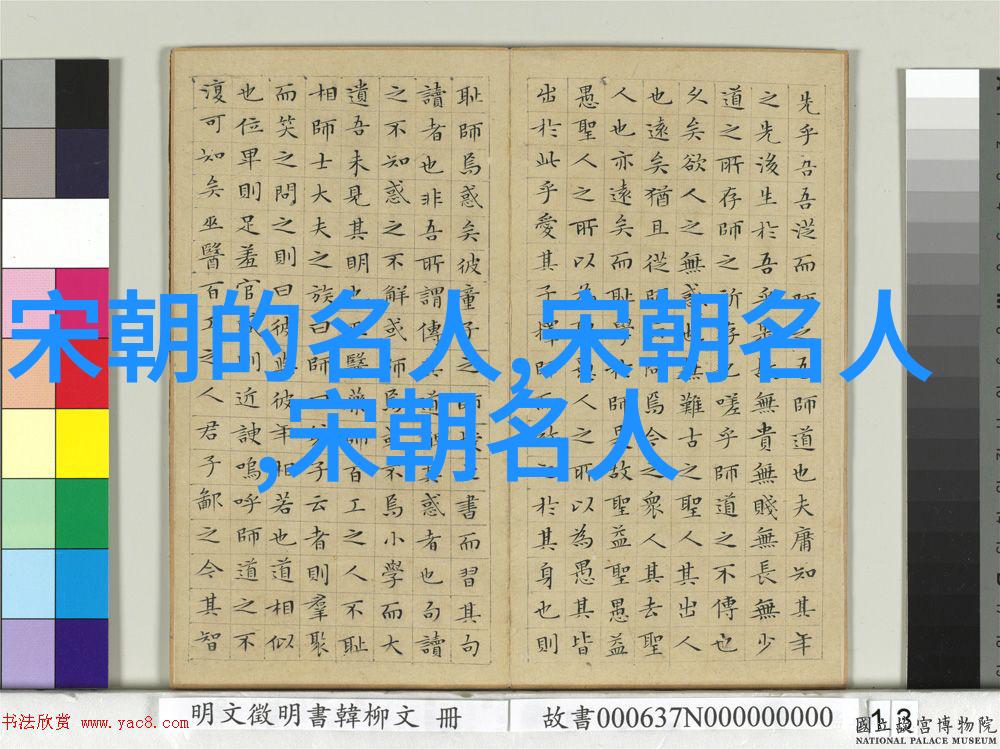 宋朝的名人,宋朝名人
,宋朝名人
先乎吾吾從而師之吾師道也夫庸知其年
之先後生於吾乎是故無貴無賤無長無少
道之所存師之所存也嗟乎師道之不傳也
久矣欲人之無惑也無難古之聖人其出人
也遠矣猶且從師而問焉今之衆人其去聖
人也亦遠矣而恥學於師是故聖益聖愚益
愚聖人之所以為聖愚人之所以為愚其皆
出於此乎愛其子擇師而教之於其身也則
恥師焉惑矣彼童子之師授之書而習其句
讀者也非吾所謂傳其道解其惑者也句讀
之不知惑之不解或師焉或不焉小學而大
遺吾未見其明也巫醫藥師百工之人不恥
相師士大夫之族曰師曰弟子云者則羣聚
而笑之問之則曰彼與彼年相若也道相似
也位卑則足羞官盛則近諛嗚呼師道之不
復可知矣巫醫百工之人君子鄙之今其智
明文徵明書韓柳文 冊
故書000637N000000000
13
书法欣赏 www.yac8.com
國立故宮博物院
NATIONAL PALACE MUSEUM